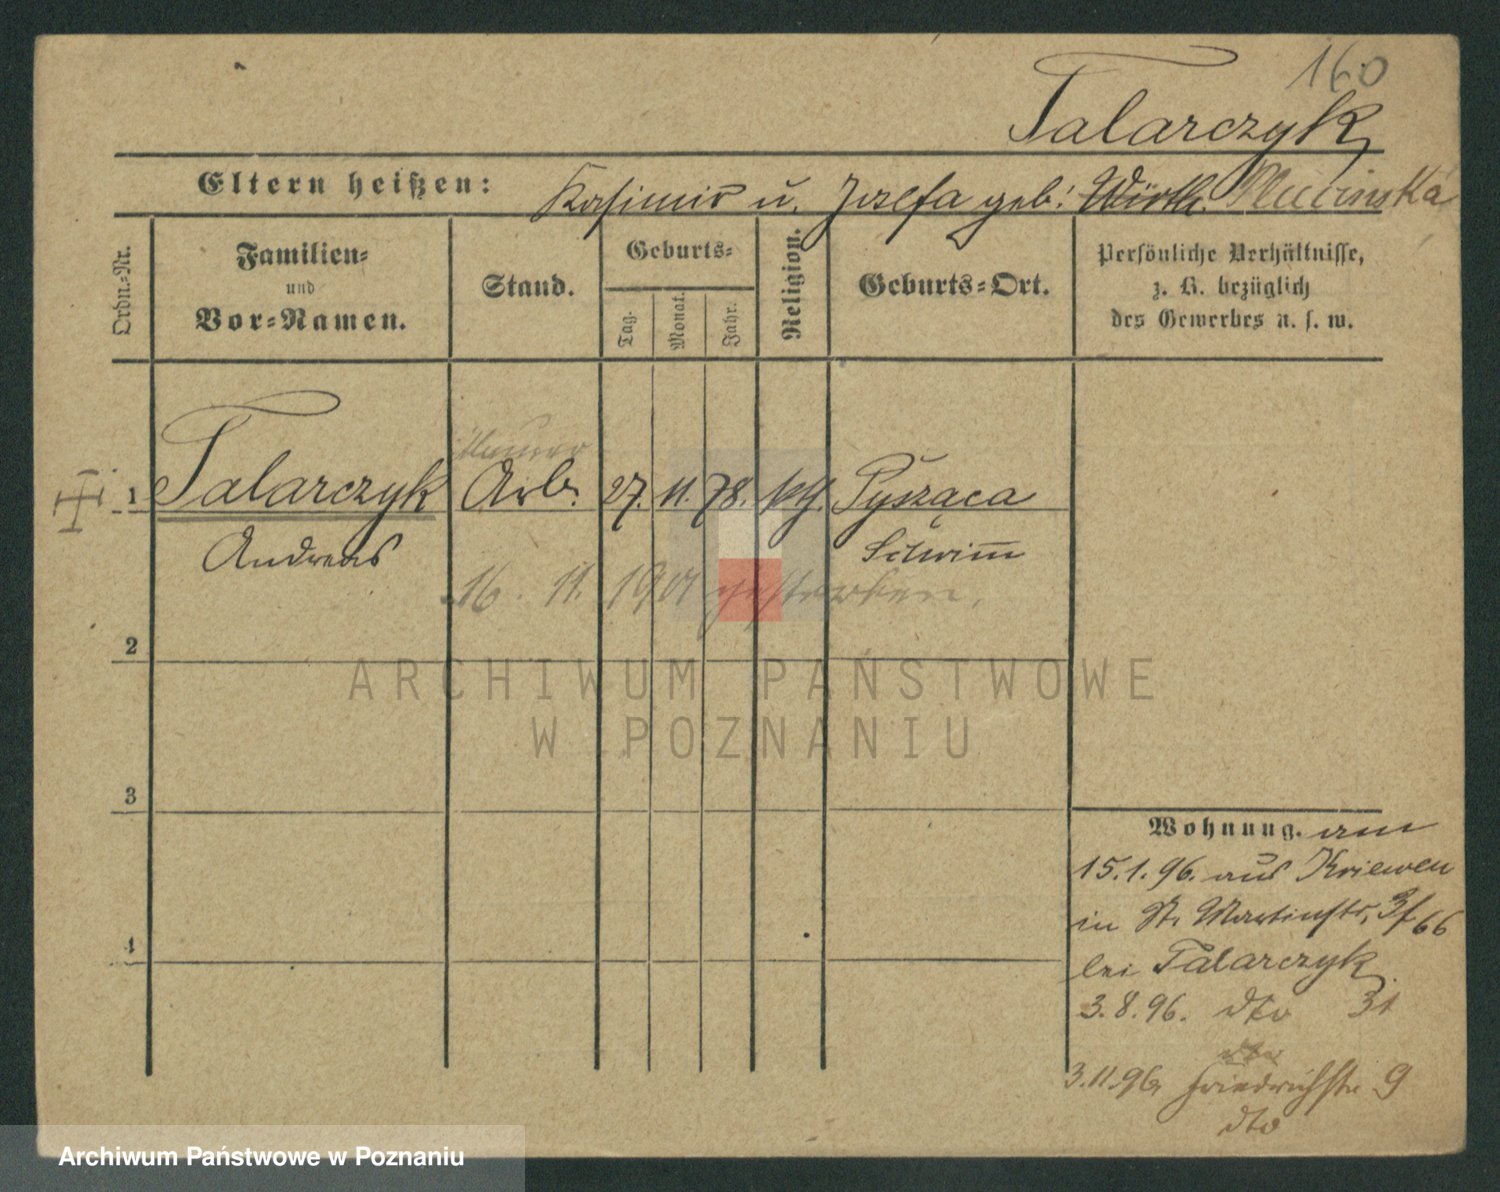 160
Talarczyk
Eltern heißen: Kasimir u. Josefa geb: Wirth.
Ordn.-Nr.
Familien-
und
Vor-Namen.
Stand.
Geburts-
Tag.
Monat.
Jahr.
Religion.
Geburts-Ort.
Persönliche Verhältnisse,
z. B. bezüglich
des Gewerbes u. s. w.
Maurer
1 Talarczyk Arb. 27. 11. 78. kth. Pysząca
Andreas Schrim̅
16. 11. 1901 gestorben.
2
3
4
Wohnung. am
15.1.96. aus Kriewen
in St. Martinstr. 66
bei Talarczyk
3.8.96. dto 31
3.11.96. Friedrichstr 9
dto
ARCHIWUM PAŃSTWOWE
W POZNANIU
Archiwum Państwowe w Poznaniu